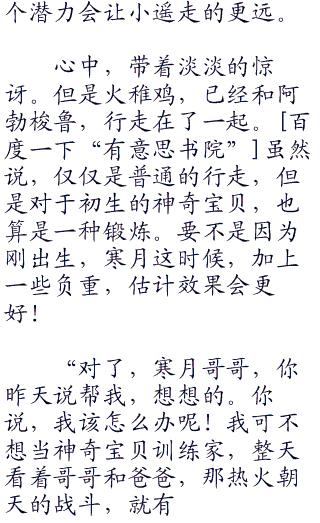 个潜力会让小遥走的更远。
心中，带着淡淡的惊
讶。但是火稚鸡，已经和阿
勃梭鲁，行走在了一起。[百
度一下“有意思书院”]虽然
说，仅仅是普通的行走，但
是对于初生的神奇宝贝，也
算是一种锻炼。要不是因为
刚出生，寒月这时候，加上
一些负重，估计效果会更
好！
“对了，寒月哥哥，你
昨天说帮我，想想的。你
说，我该怎么办呢！我可不
想当神奇宝贝训练家，整天
看着哥哥和爸爸，那热火朝
天的战斗，就有